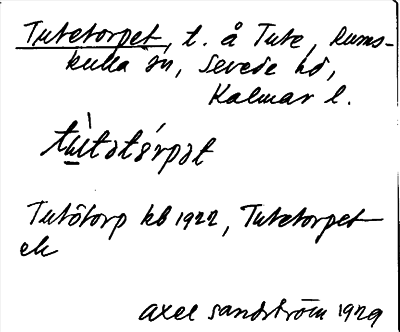 Tutetorpet, t. å Tute, Rums-
kulla sn, Sevede hd,
Kalmar l.
tùtətórpət
Tutôtorp kb 1922, Tutetorpet
ek
Axel Sandström 1929